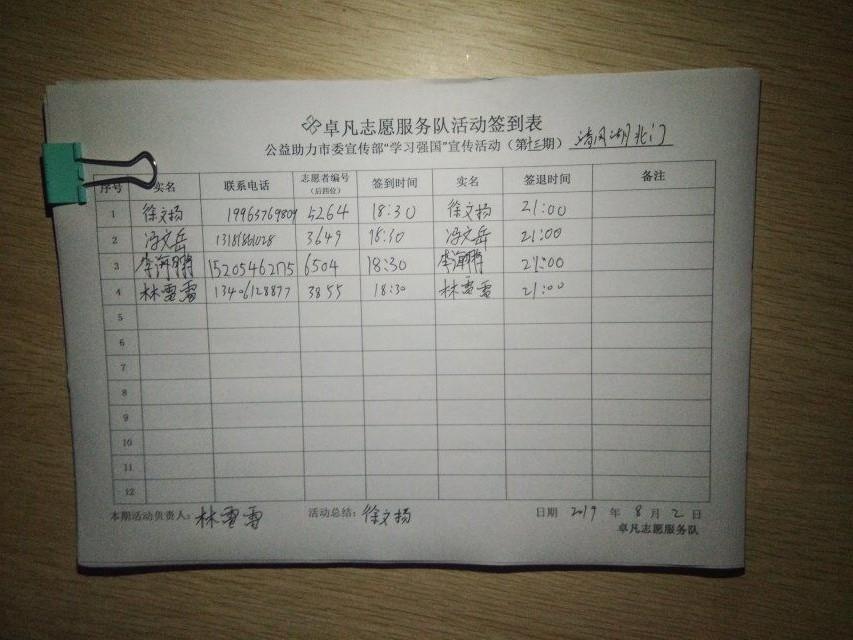 卓凡志愿服务队活动签到表
公益助力市委宣传部"学习强国"宣传活动（第 期） 清风湖北门
序号 实名 联系电话 志愿者编号（后四位） 签到时间 实名 签退时间 备注
1 徐文扬 19963769809 5264 18:30 徐文扬 21:00
2 冯文岳 3649 18:30 冯文岳 21:00
3 李海鹏 15205462715 6504 18:30 李海鹏 21:00
4 林雪雪 13406128877 3855 18:30 林雪雪 21:00
5
6
7
8
9
10
11
12
本期活动负责人：林雪雪 活动总结：徐文扬 日期 2019 年 8 月 2 日
卓凡志愿服务队